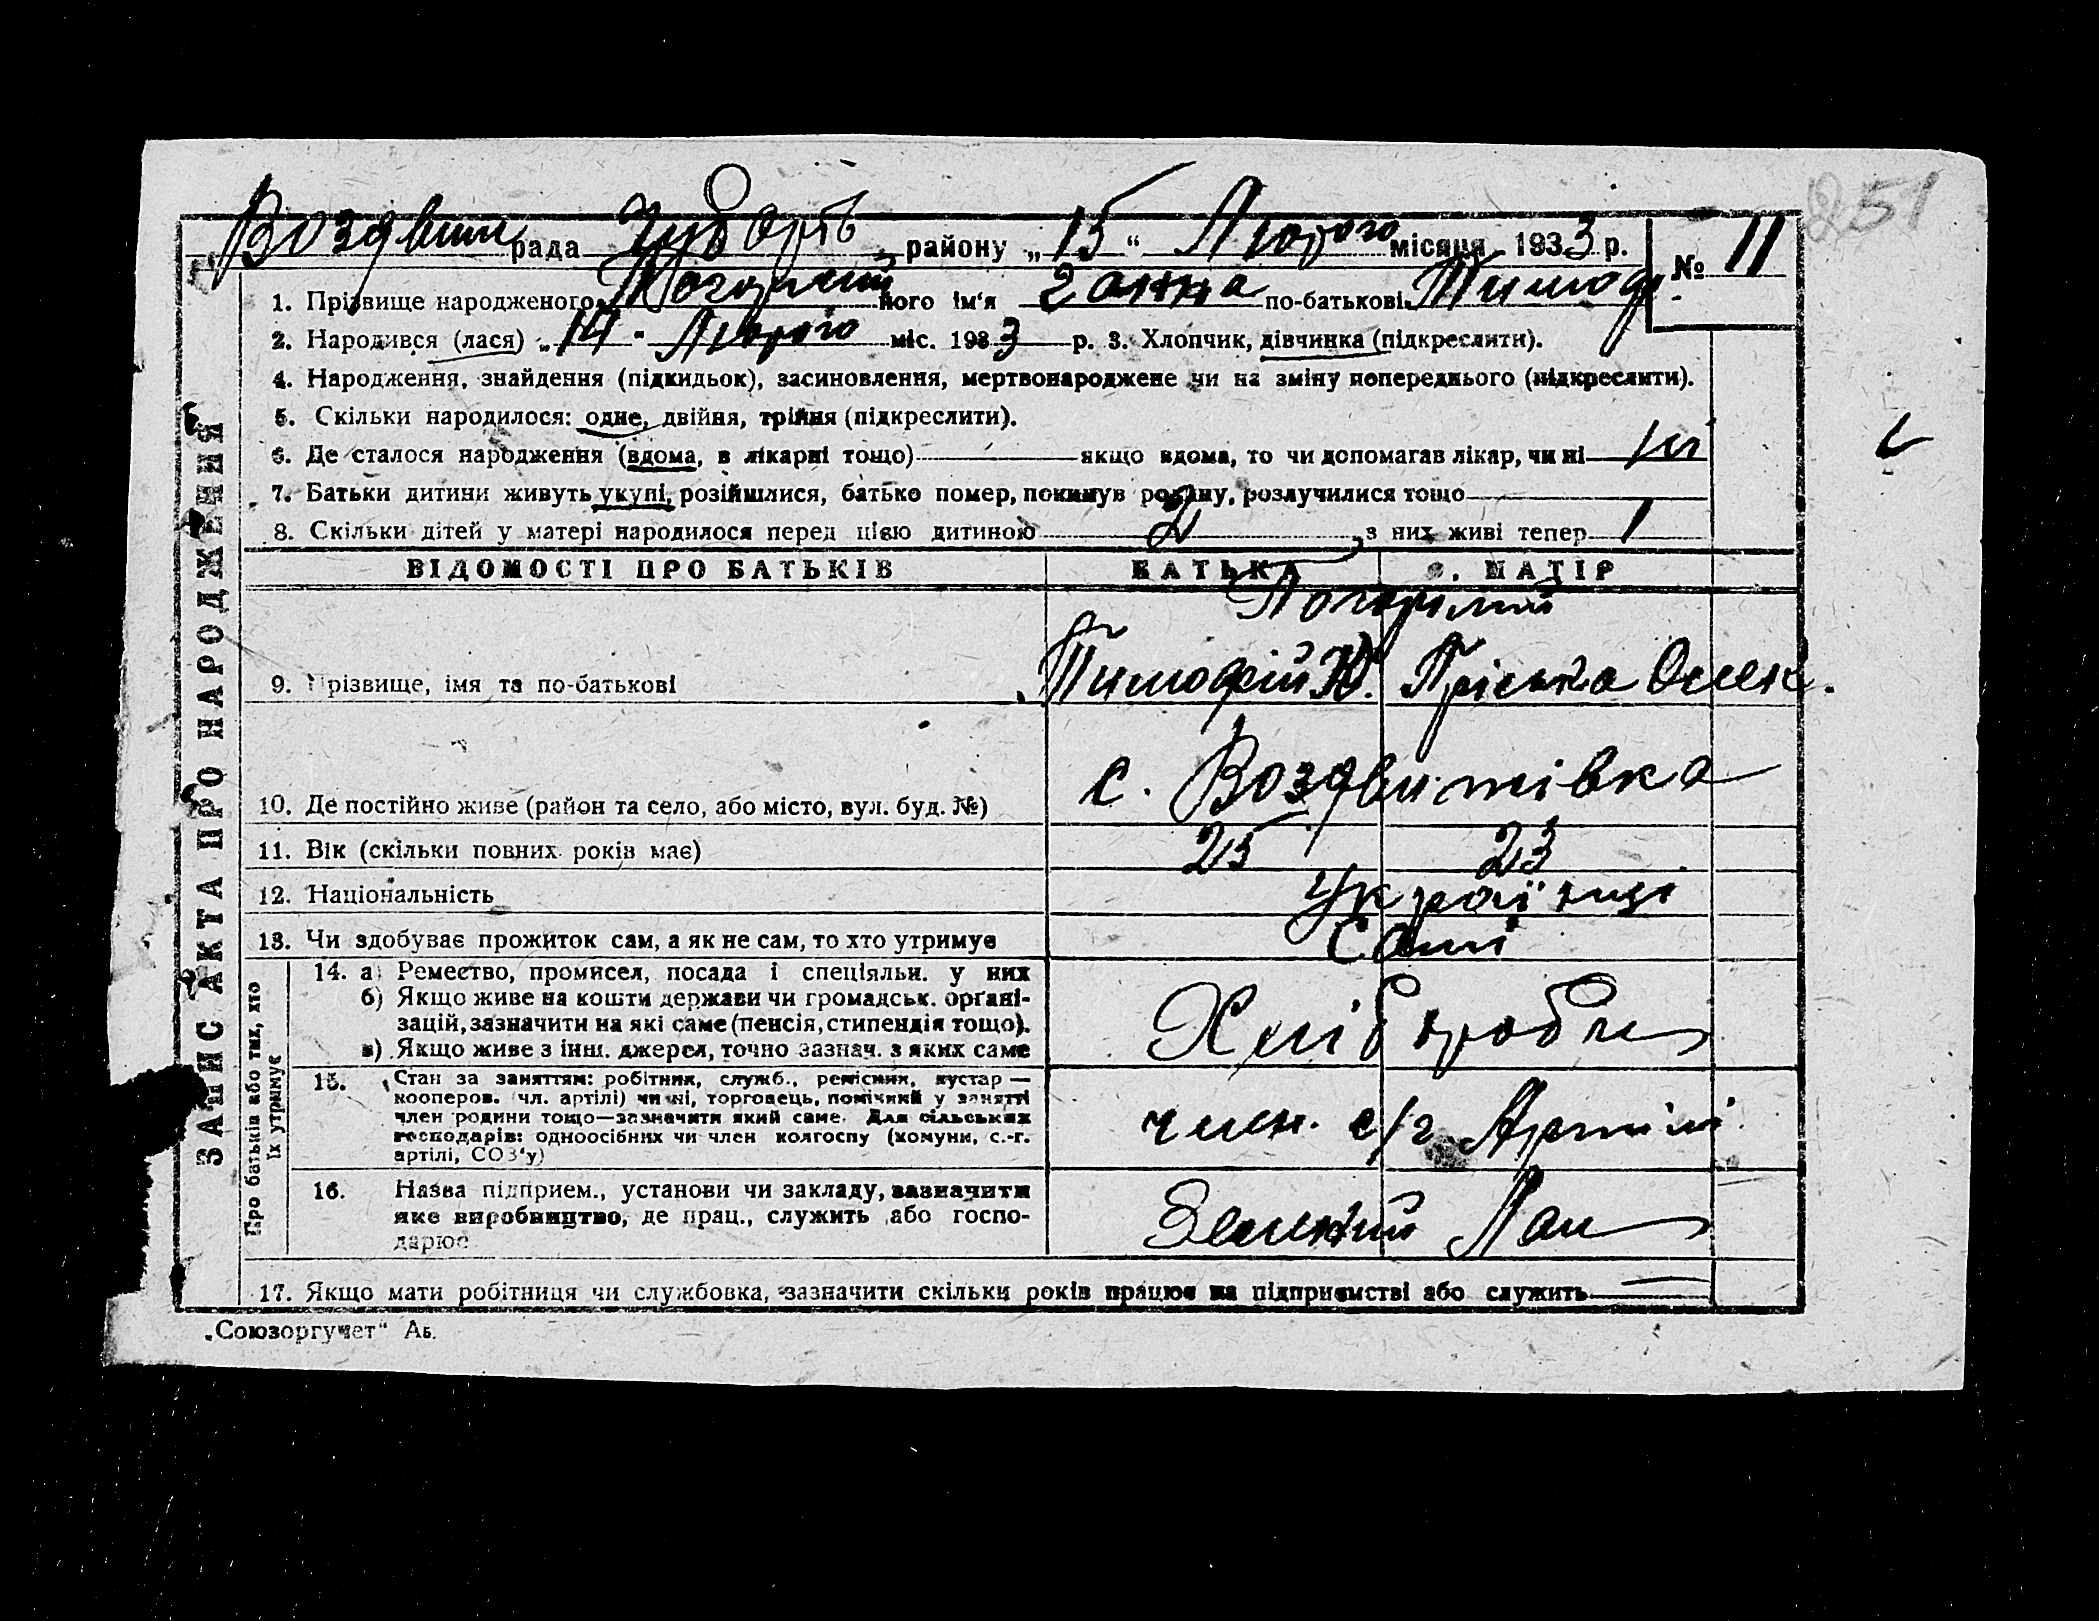 251
Воздвиж рада Чубарів, району „15“ Лютого місяця 1933 р. № 11
1. Прізвище народженого Погорілий його ім‘я Ганна по-батькові Тимоф
2. Народився (лася) „14“ Лютого міс. 1933 р. 3. Хлопчик, дівчинка (підкреслити).
4. Народження, знайдення (підкидьок), засиновлення, мертвонароджене чи на зміну попереднього (підкреслити).
5. Скільки народилося: одне, двійня, трійня (підкреслити).
6. Де сталося народження (вдома, в лікарні тощо) якщо вдома, то чи допомагав лікар, чи ні ні
7. Батьки дитини живуть укупі, розійшлися, батько помер, покинув родину, розлучилися тощо
8. Скільки дітей у матері народилося перед цією дитиною 2, з них живі тепер 1
ВІДОМОСТІ ПРО БАТЬКІВ БАТЬКА МАТІР
Погорілий
9. Прізвище, імя та по-батькові Тимофій Ю. Пріська Олек.
10. Де постійно живе (район та село, або місто, вул. буд. №) с. Воздвижівка
11. Вік (скільки повних років має) 25 23
12. Національність Українці
13. Чи здобуває прожиток сам, а як не сам, то хто утримує Самі
14. а) Ремество, промисел, посада і спеціяльн. у них
б) Якщо живе на кошти держави чи громадськ. орґані-
зацій, зазначити на які саме (пенсія, стипендія тощо).
в) Якщо живе з інш. джерел, точно зазнач. з яких саме
Хлібороби
15. Стан за заняттям: робітник, служб., ремісник, кустар —
кооперов. (чл. артілі) чи ні, торговець, помічний у занятті
член родини тощо—зазначити який саме. Для сільських
господарів: одноосібних чи член колгоспу (комуни, с.-г.
артілі, СОЗ‘у)
член. с/г Артілі
16. Назва підприєм., установи чи закладу, зазначити
яке виробництво, де прац., служить або госпо-
дарює
Зелений Лан
17. Якщо мати робітниця чи службовка, зазначити скільки років працює на підприємстві або служить
ЗАПИС АКТА ПРО НАРОДЖЕННЯ
Про батьків або тих, хто
їх утримує
„Союзоргучет“